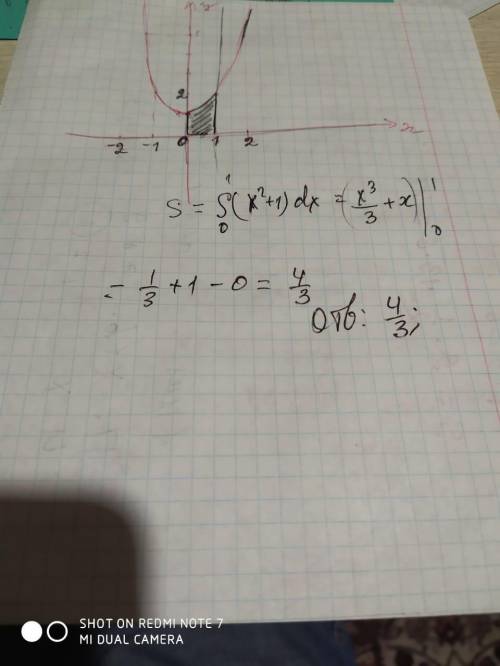 2
-2 -1 0 1 2 x
S = ∫₀¹ (x²+1) dx = (x³/3 + x) |₀¹
= 1/3 + 1 - 0 = 4/3
Отв: 4/3;
SHOT ON REDMI NOTE 7
MI DUAL CAMERA